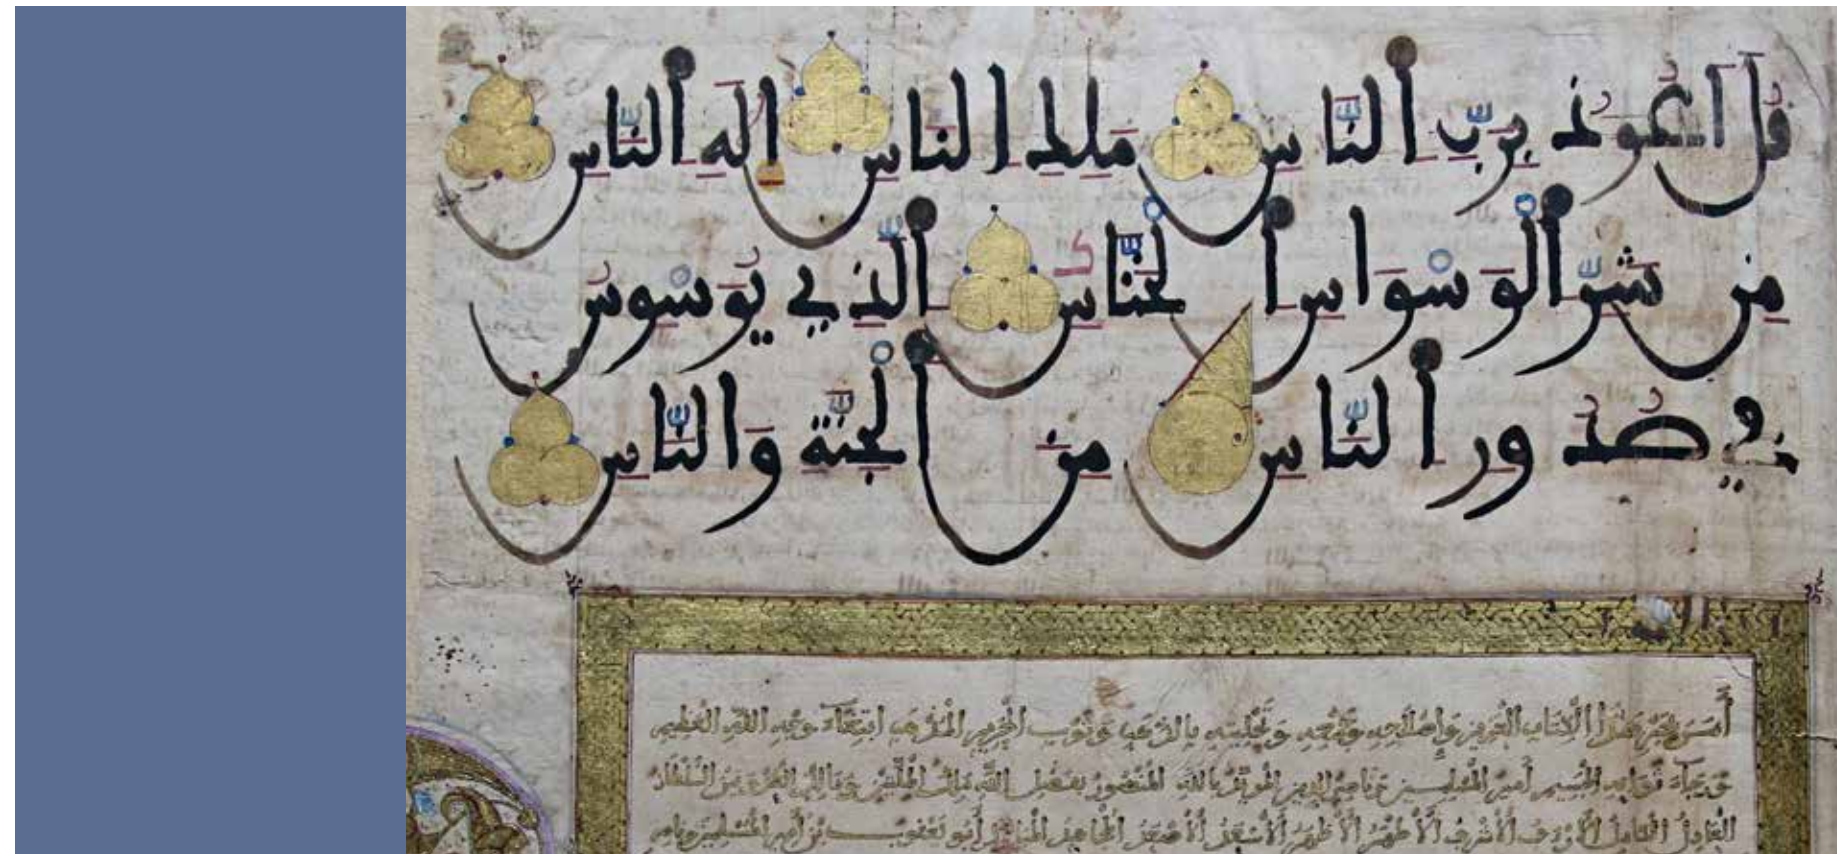 قل اعوذ برب الناس ملك الناس اله الناس
من شر الوسواس الخناس الذي يوسوس
في صدور الناس من الجنة والناس
أمر بجبر هذا الكتاب العزيز وإصلاحه وجمعه وتحليته بالذهب وثوب الحرير المذهب ابتغاء وجه الله العظيم
ورجاء ثوابه الجسيم أمير المسلمين وناصر الدين بالله المنصور بفضل الله ملك السلطان
العادل الفاضل الأروف الأشرف الأطهر الأظهر الأسعد الأصعد المجاهد أبو يعقوب بن أمير المسلمين وناصر